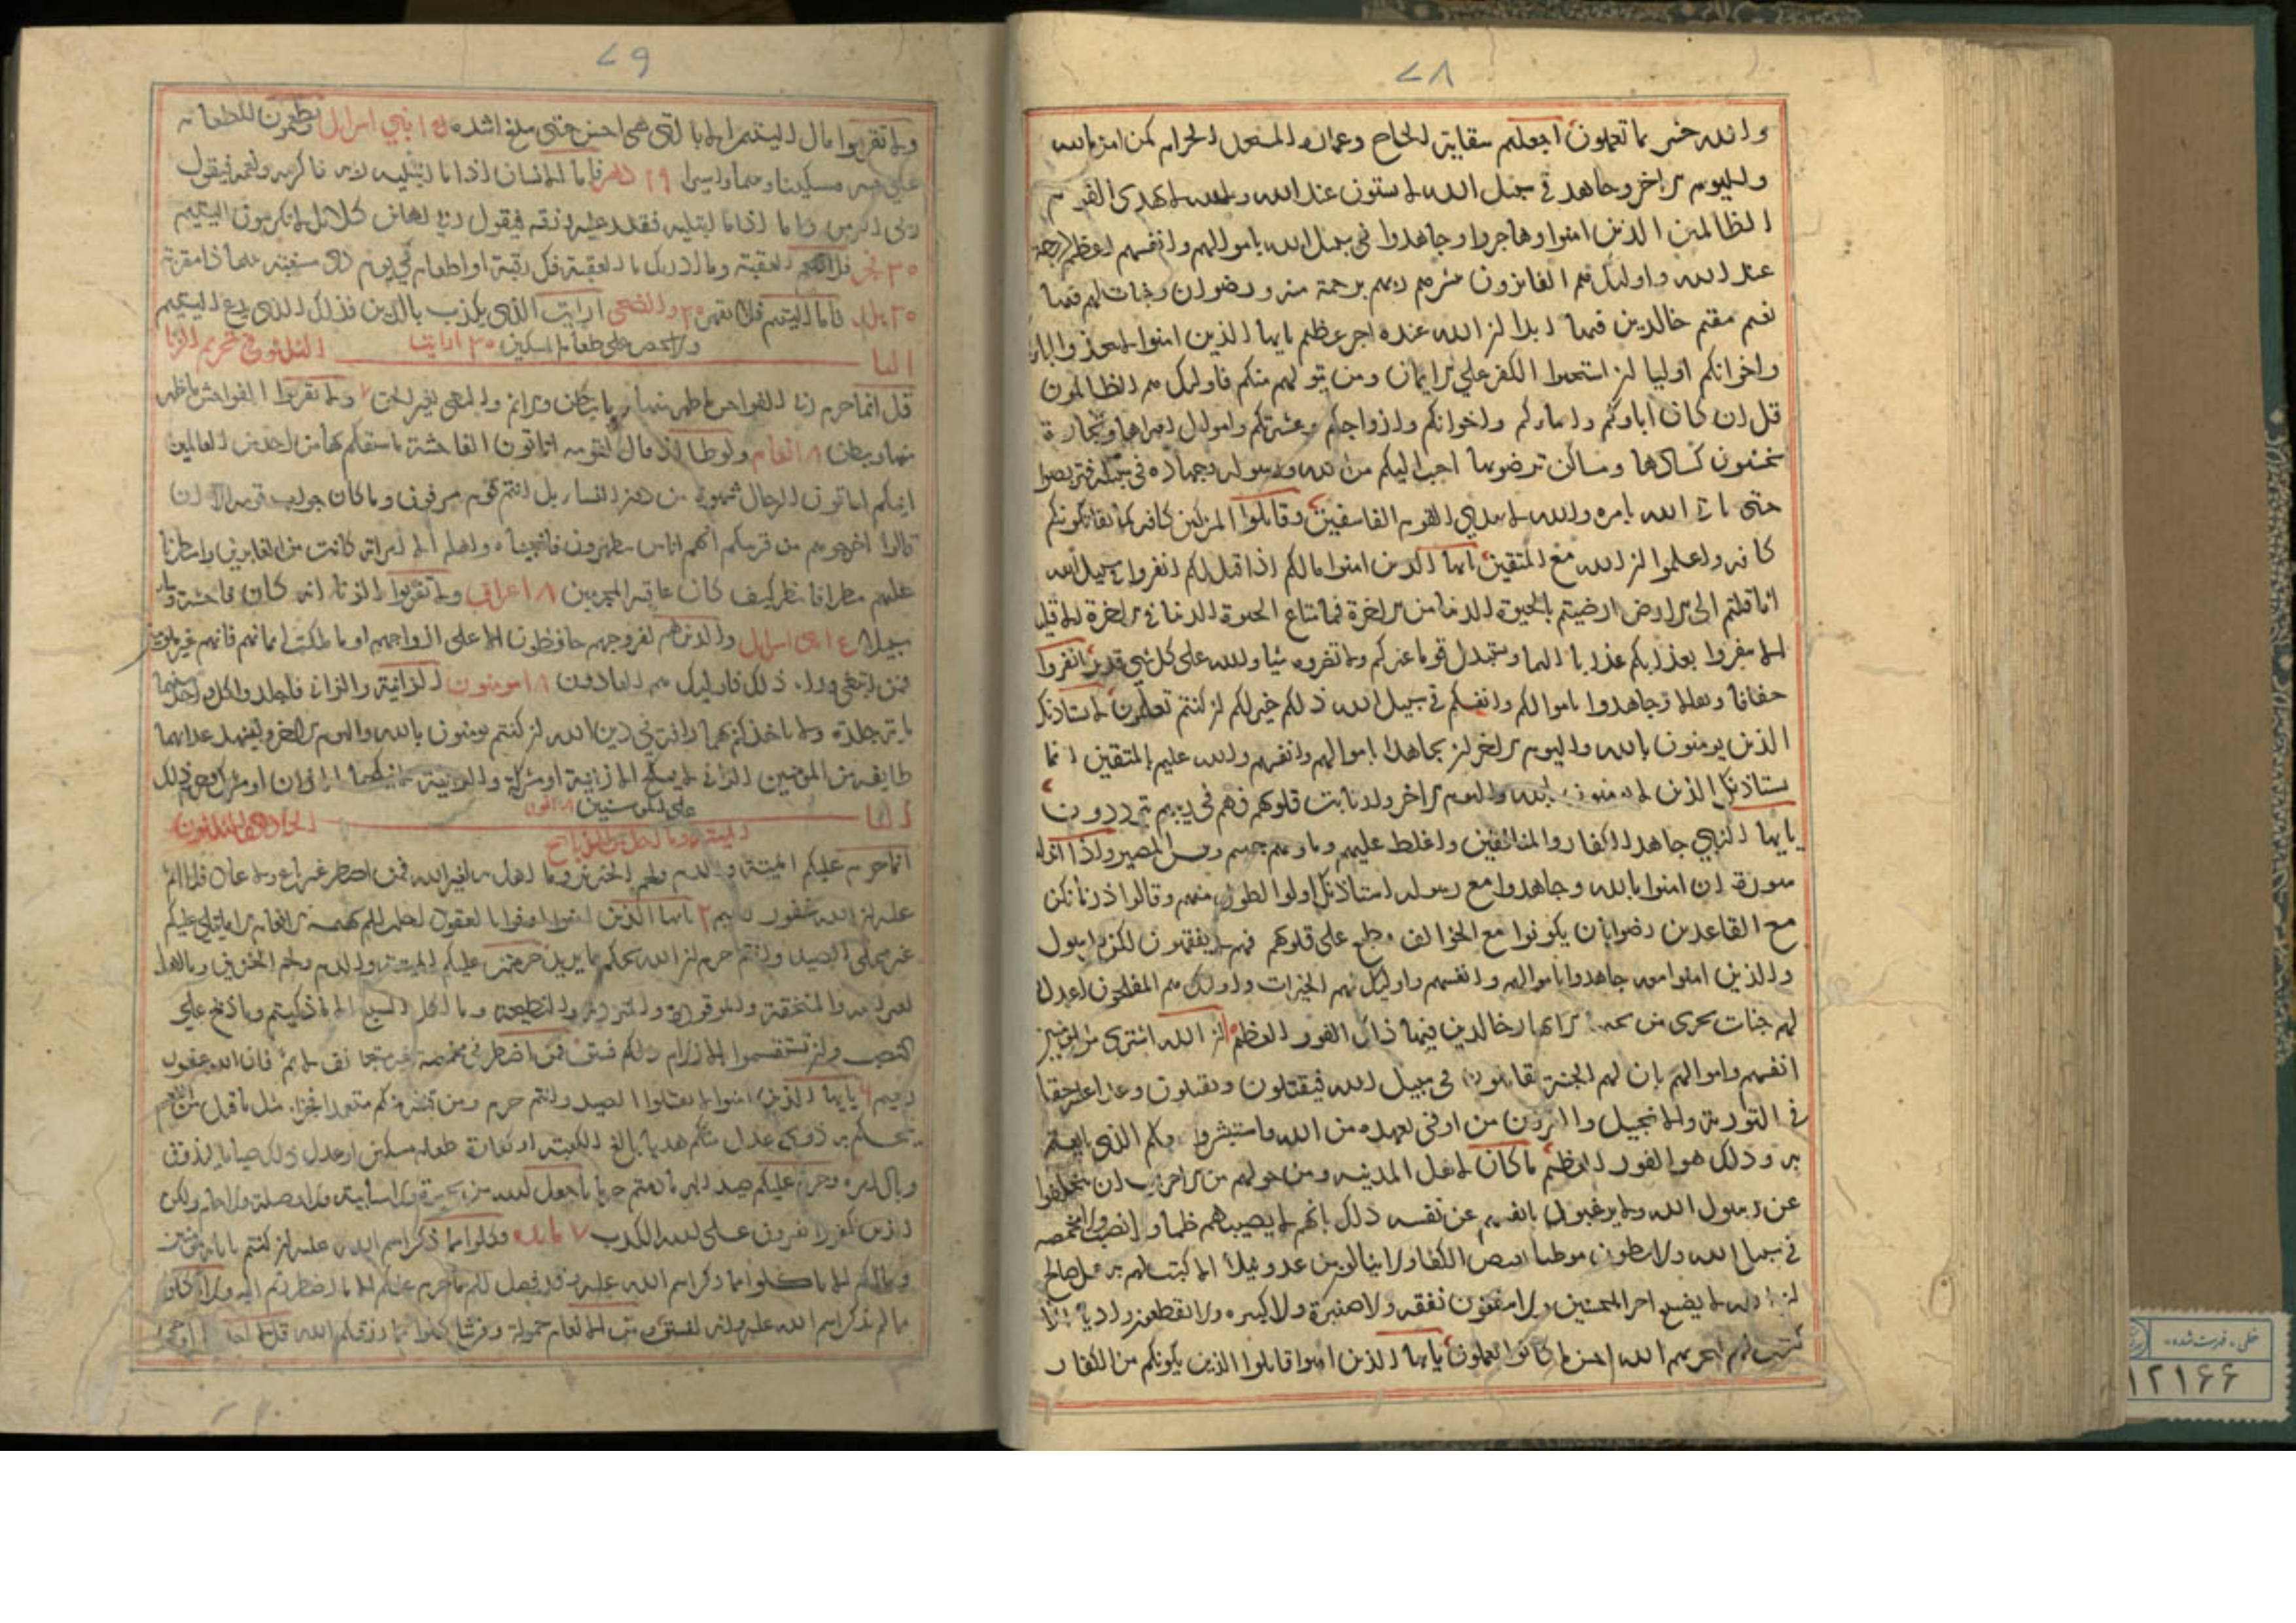 ۷۸
والله خبير بما تعملون اجعلتم سقاية الحاج وعمارة المسجد الحرام كمن امن بالله
واليوم الاخر وجاهد في سبيل الله لا يستون عند الله والله لا يهدي القوم
الظالمين الذين امنوا وهاجروا وجاهدوا في سبيل الله باموالهم وانفسهم اعظم درجة
عند الله واوليك هم الفايزون يبشرهم ربهم برحمة منه ورضوان وجنات لهم فيها
نعيم مقيم خالدين فيها ابدا ان الله عنده اجر عظيم يايها الذين امنوا لا تتخذوا اباكم
واخوانكم اوليا ان استحبوا الكفر على الايمان ومن يتولهم منكم فاوليك هم الظالمون
قل ان كان اباوكم وابناوكم واخوانكم وازواجكم وعشيرتكم واموال اقترفتموها وتجارة
تخشون كسادها ومساكن ترضونها احب اليكم من الله ورسوله وجهاد في سبيله فتربصوا
حتى ياتي الله بامره والله لا يهدي القوم الفاسقين وقاتلوا المشركين كافة كما يقاتلونكم
كافة واعلموا ان الله مع المتقين يايها الذين امنوا مالكم اذا قيل لكم انفروا في سبيل الله
اثاقلتم الى الارض ارضيتم بالحيوة الدنيا من الاخرة فما متاع الحيوة الدنيا في الاخرة الا قليل
الا تنفروا يعذبكم عذابا اليما ويستبدل قوما غيركم ولا تضروه شيا والله على كل شي قدير انفروا
خفافا وثقالا وجاهدوا باموالكم وانفسكم في سبيل الله ذلكم خير لكم ان كنتم تعلمون لا يستاذنك
الذين يومنون بالله واليوم الاخر ان يجاهدوا باموالهم وانفسهم والله عليم بالمتقين انما
يستاذنك الذين لا يومنون بالله واليوم الاخر وارتابت قلوبهم فهم في ريبهم يترددون
يايها النبي جاهد الكفار والمنافقين واغلظ عليهم وماويهم جهنم وبئس المصير واذا انزلت
سورة ان امنوا بالله وجاهدوا مع رسوله استاذنك اولوا الطول منهم وقالوا ذرنا نكن
مع القاعدين رضوا بان يكونوا مع الخوالف وطبع على قلوبهم فهم لا يفقهون لكن الرسول
والذين امنوا معه جاهدوا باموالهم وانفسهم واوليك لهم الخيرات واوليك هم المفلحون اعد الله
لهم جنات تجري من تحتها الانهار خالدين فيها ذلك الفوز العظيم ان الله اشترى من المومنين
انفسهم واموالهم بان لهم الجنة يقاتلون في سبيل الله فيقتلون ويقتلون وعدا عليه حقا
في التورية والانجيل والقران ومن اوفى بعهده من الله فاستبشروا ببيعكم الذي بايعتم
به وذلك هو الفوز العظيم ما كان لاهل المدينه ومن حولهم من الاعراب ان يتخلفوا
عن رسول الله ولا يرغبوا بانفسهم عن نفسه ذلك بانهم لا يصيبهم ظما ولا نصب ولا مخمصة
في سبيل الله ولا يطون موطيا يغيض الكفار ولا ينالون من عدو نيلا الا كتب لهم به عمل صالح
ان الله لا يضيع اجر المحسنين ولا ينفقون نفقه ولا صغيرة ولا كبيره ولا يقطعون واديا الا
كتب لهم ليجزيهم الله احسن ما كانوا يعملون يايها الذين امنوا قاتلوا الذين يلونكم من الكفار
۷۹
ولا تقربوا مال اليتيم الا بالتي هي احسن حتى يبلغ اشده ۱۵ بني اسرايل ويطعمون الطعام
على حبه مسكينا ويتيما واسيرا ۲۹ دهر فاما الانسان اذا ما ابتليه ربه فاكرمه ونعمه فيقول
ربي اكرمن واما اذا ما ابتليه فقدر عليه رزقه فيقول ربي اهانن كلا بل لا تكرمون اليتيم
۳۰ فجر فلا اقتحم العقبة وما ادريك ما العقبة فك رقبة او اطعام في يوم ذي مسغبة يتيما ذا مقربة
۳۰ بلد فاما اليتيم فلا تقهر ۳۰ والضحى ارايت الذي يكذب بالدين فذلك الذي يدع اليتيم
ولا يحض على طعام المسكين ۳۰ ارايت
البا الثلثون في تحريم الزنا
قل انما حرم ربي الفواحش ما ظهر منها وما بطن والاثم والبغي بغير الحق ولا تقربوا الفواحش ما ظهر
منها وما بطن ۸ انعام ولوطا اذ قال لقومه اتاتون الفاحشة ما سبقكم بها من احد من العالمين
اينكم لتاتون الرجال شهوة من دون النسا بل انتم قوم مسرفون وما كان جواب قومه الا ان
قالوا اخرجوهم من قريتكم انهم اناس يتطهرون فانجيناه واهله الا امراته كانت من الغابرين وامطرنا
عليهم مطرا فانظر كيف كان عاقبة المجرمين ۸ اعراف ولا تقربوا الزنا انه كان فاحشة وساء
سبيلا ۱۵ بني اسرايل والذين هم لفروجهم حافظون الا على ازواجهم او ما ملكت ايمانهم فانهم غير ملومين
فمن ابتغى وراء ذلك فاوليك هم العادون ۱۸ مومنون الزانية والزاني فاجلدوا كل واحد منهما
ماية جلدة ولا تاخذكم بهما رافة في دين الله ان كنتم تومنون بالله واليوم الاخر وليشهد عذابهما
طايفة من المومنين الزاني لا ينكح الا زانية او مشركة والزانية لا ينكحها الا زان او مشرك وحرم ذلك
على المومنين ۱۸ نور
البا الحادي والثلثون
انما حرم عليكم الميتة والدم ولحم الخنزير وما اهل به لغير الله فمن اضطر غير باغ ولا عاد فلا اثم
عليه ان الله غفور رحيم ۲ يايها الذين امنوا اوفوا بالعقود احلت لكم بهيمة الانعام الا ما يتلى عليكم
غير محلي الصيد وانتم حرم ان الله يحكم ما يريد حرمت عليكم الميتة والدم ولحم الخنزير وما اهل
لغير الله به والمنخنقة والموقوذة والمتردية والنطيحة وما اكل السبع الا ما ذكيتم وما ذبح على
النصب وان تستقسموا بالازلام ذلكم فسق فمن اضطر في مخمصة غير متجانف لاثم فان الله غفور
رحيم ۶ يايها الذين امنوا لا تقتلوا الصيد وانتم حرم ومن قتله منكم متعمدا فجزاء مثل ما قتل من النعم
يحكم به ذوي عدل منكم هديا بالغ الكعبة او كفارة طعام مسكين او عدل ذلك صياما ليذوق
وبال امره وحرم عليكم صيد البر ما دمتم حرما ما جعل الله من بحيرة ولا سايبة ولا وصيلة ولا حام ولكن
الذين كفروا يفترون على الله الكذب ۷ مايده وكلوا مما ذكر اسم الله عليه ان كنتم باياته مومنين
وما لكم الا تاكلوا مما ذكر اسم الله عليه وقد فصل لكم ما حرم عليكم الا ما اضطررتم اليه ولا تاكلوا
مما لم يذكر اسم الله عليه وانه لفسق ومن الانعام حمولة وفرشا كلوا مما رزقكم الله
خطی «فهرست شده»
۱۲۱۶۶